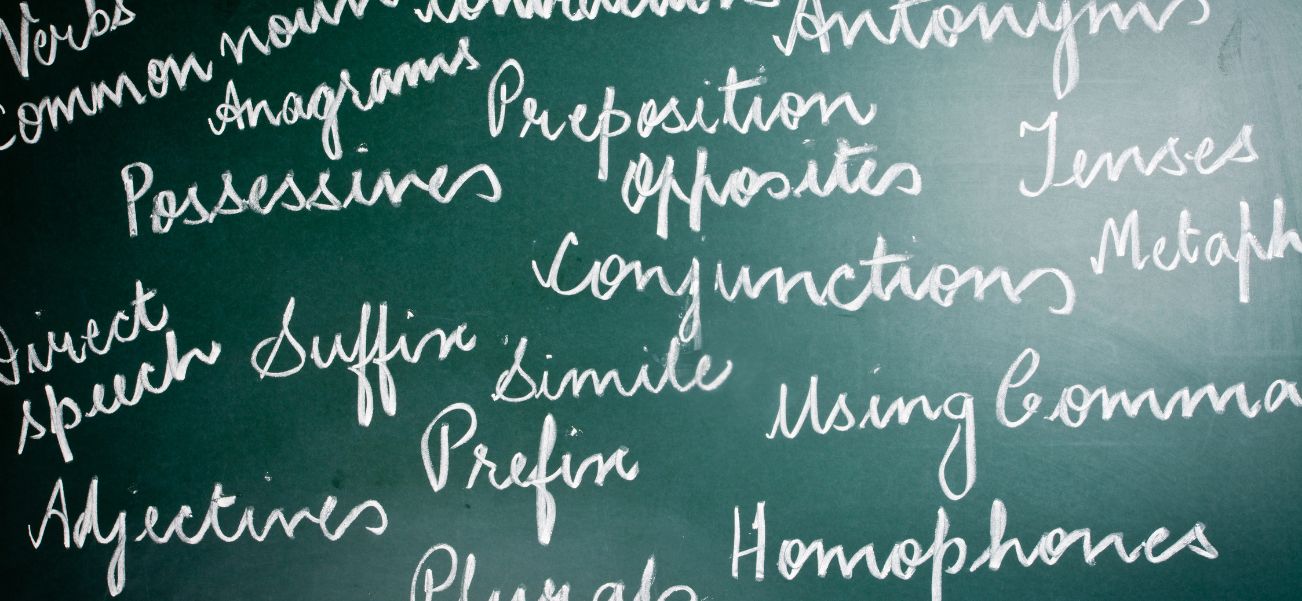 Verbs
Common noun
Antonyms
Anagrams
Preposition
Tenses
Possessives
Opposites
Conjunctions
Metaph
Direct
speech
Suffix
Simile
Using Comma
Prefix
Adjectives
Homophones
Plurals